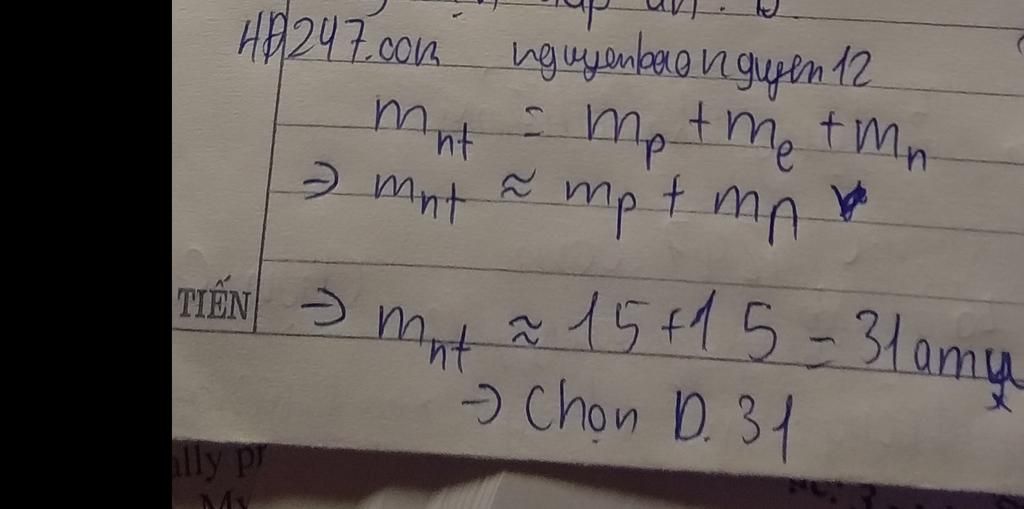 HĐ247.com nguyenbaonguyen12
m_nt = m_p + m_e + m_n
⇒ m_nt ≈ m_p + m_n
TIẾN
⇒ m_nt ≈ 15 + 15 = 31 amu
⇒ Chọn D. 31
ally pr
My